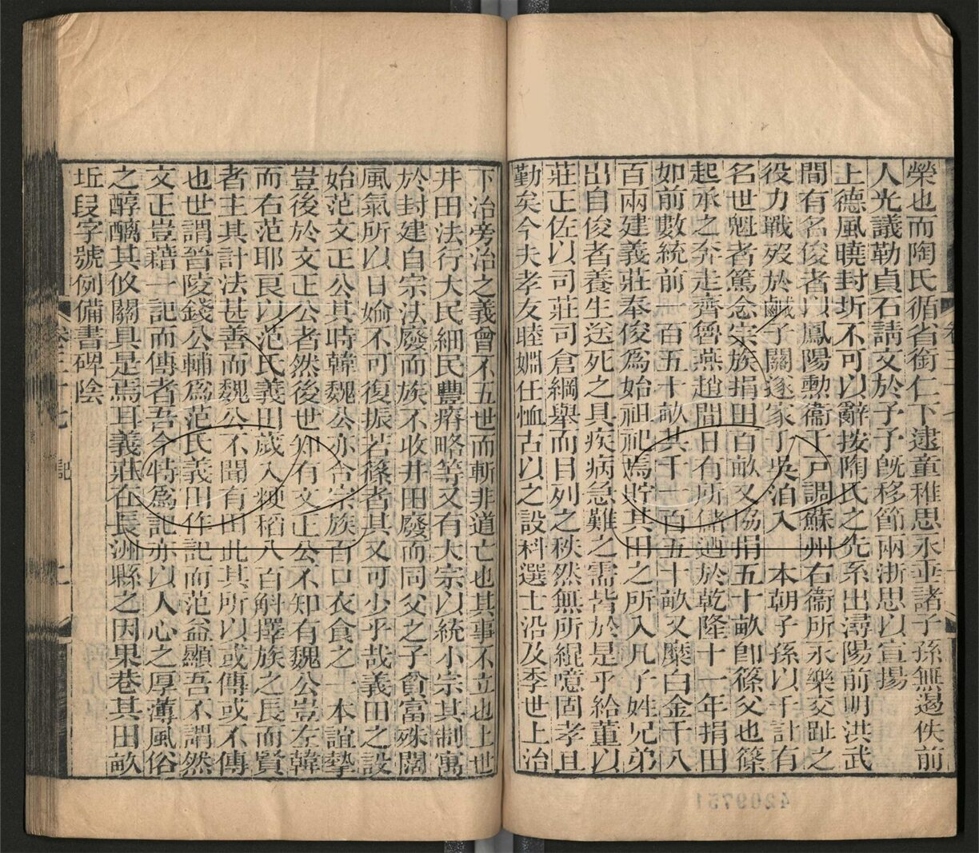 榮也而陶氏循省銜仁下逮童稚思永垂諸子孫無遏佚前
人光議勒貞石請文於予予旣移節兩浙思以宣揚
上德風曉封圻不可以辭按陶氏之先系出潯陽前明洪武
間有名俊者以鳳陽勳衞丁戸調蘇州右衞所永樂交趾之
役力戰歿於鹹子關遂家于吳泊入本朝子孫以千計有
名世魁者篤念宗族捐田百畝又協捐五十畝卽篠父也篠
起承之奔走齊魯燕趙間日有所儲迺於乾隆十一年捐田
如前數統前一百五十畝共千一百五十畝又縻白金千八
百兩建義莊奉俊爲始祖祀焉貯其田之所入凡子姓兄弟
出自俊者養生送死之具疾病急難之需皆於是乎給董以
莊正佐以司莊司倉綱舉而目列之秩然無所緄噫固孝且
勤矣今夫孝友睦婣任恤古以之設科選士沿及季世上治
下治旁治之義曾不五世而斬非道亡也其事不立也上世
井田法行大民細民豐瘠略等又有大宗以統小宗其制寓
於封建自宗法廢而族不收井田廢而同父之子貧富殊闊
風氣所以日媮不可復振若篠者其又可少乎哉義田之設
始范文正公其時韓魏公亦合宗族百口衣食之一本誼摯
豈後於文正公者然後世知有文正公不知有魏公豈左韓
而右范耶良以范氏義田歲入粳稻八百斛擇族之長而賢
者主其計法甚善而魏公不聞有田此其所以或傳或不傳
也世謂晉陵錢公輔爲范氏義田作記而范益顯吾不謂然
文正豈藉一記而傳者吾今特爲記亦以人心之厚薄風俗
之醇醨其攸關具是焉耳義莊在長洲縣之因果巷其田畝
坵段字號例備書碑陰
卷三十七 記
4209751